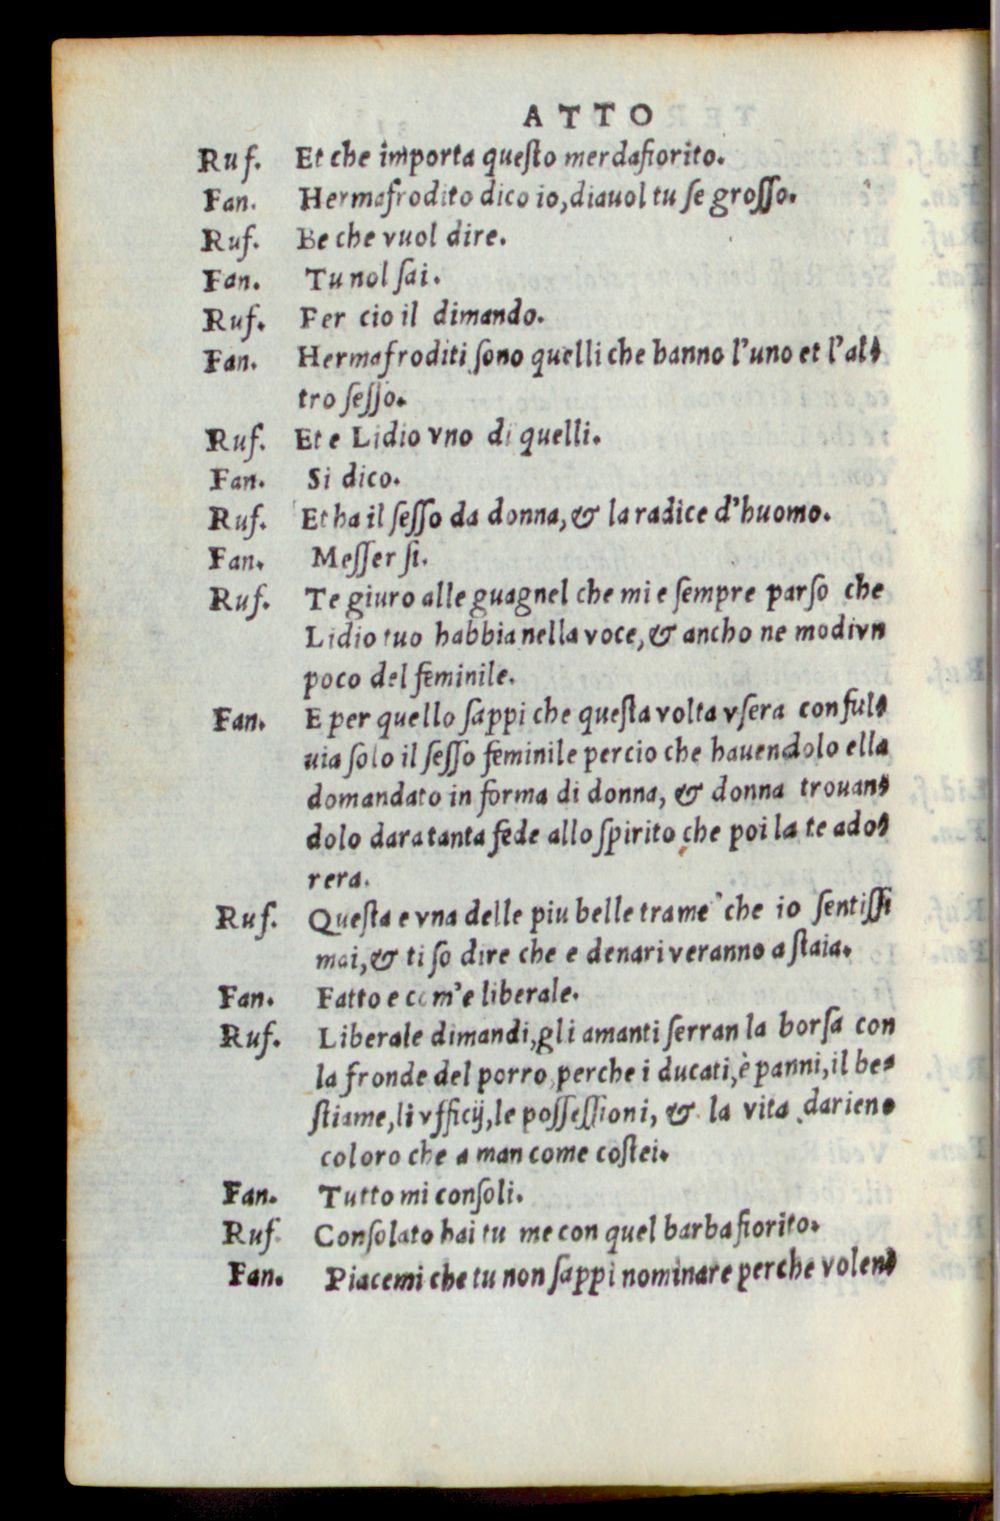 ATTO
Ruſ. Et che importa queſto merdafiorito.
Fan. Hermafrodito dico io, diauol tu ſe groſſo.
Ruſ. Be che vuol dire.
Fan. Tu nol ſai.
Ruſ. Per cio il dimando.
Fan. Hermafroditi ſono quelli che hanno l'uno et l'al-
tro ſeſſo.
Ruſ. Et e Lidio vno di quelli.
Fan. Si dico.
Ruſ. Et ha il ſeſſo da donna, & la radice d'huomo.
Fan. Meſſer ſi.
Ruſ. Te giuro alle guagnel che mi e ſempre parſo che
Lidio tuo habbia nella voce, & ancho ne modi vn
poco del feminile.
Fan. E per quello ſappi che queſta volta vſera con ful-
uia ſolo il ſeſſo feminile percio che hauendolo ella
domandato in forma di donna, & donna trouan-
dolo dara tanta fede allo ſpirito che poi la te ado-
rera.
Ruſ. Queſta e vna delle piu belle trame che io ſentiſſi
mai, & ti ſo dire che e denari veranno a ſtaia.
Fan. Fatto e com'e liberale.
Ruſ. Liberale dimandi, gli amanti ſerran la borſa con
la fronde del porro perche i ducati, è panni, il be-
ſtiame, li vfficij, le poſſeſſioni, & la vita darieno
coloro che a man come coſtei.
Fan. Tutto mi conſoli.
Ruſ. Conſolato hai tu me con quel barbafiorito.
Fan. Piacemi che tu non ſappi nominare perche volen-